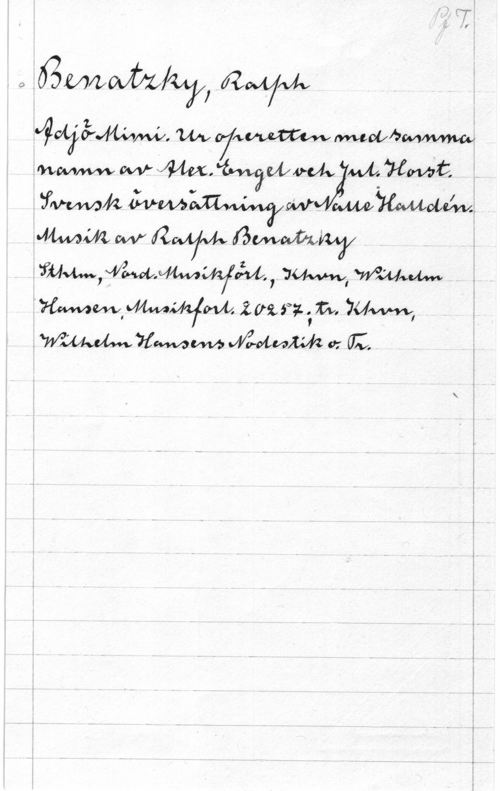 Pf T.
Benatzky, Ralph
Adjö Mimi. Ur operetten med samma
namn av Alex. Engel och Jul. Horst.
Svensk översättning av Nalle Halldén.
Musik av Ralph Benatzky
Sthlm, Nord. Musikförl., Khvn, Wilhelm
Hansen, Musikforl. 20257; tr. Khvn,
Wilhelm Hansens Nodestik o. Tr.